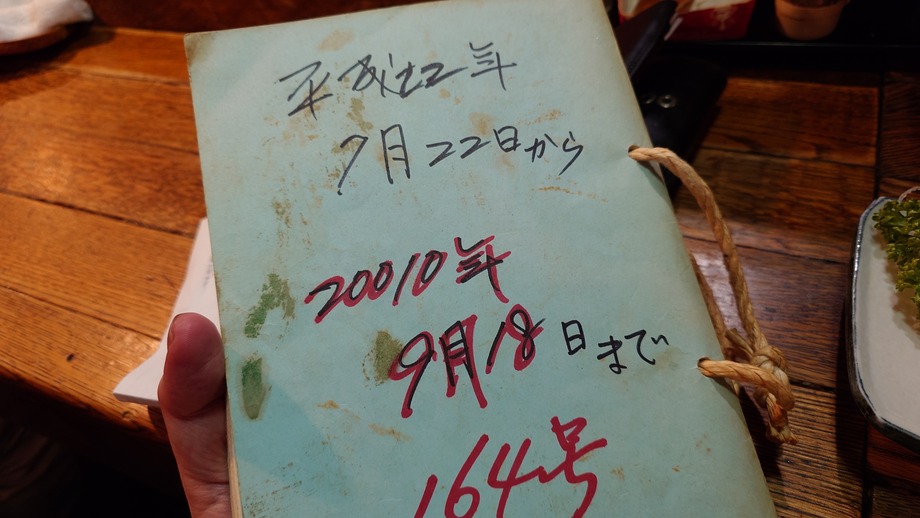 平成22年
7月22日から
20010年
9月18日まで
164号